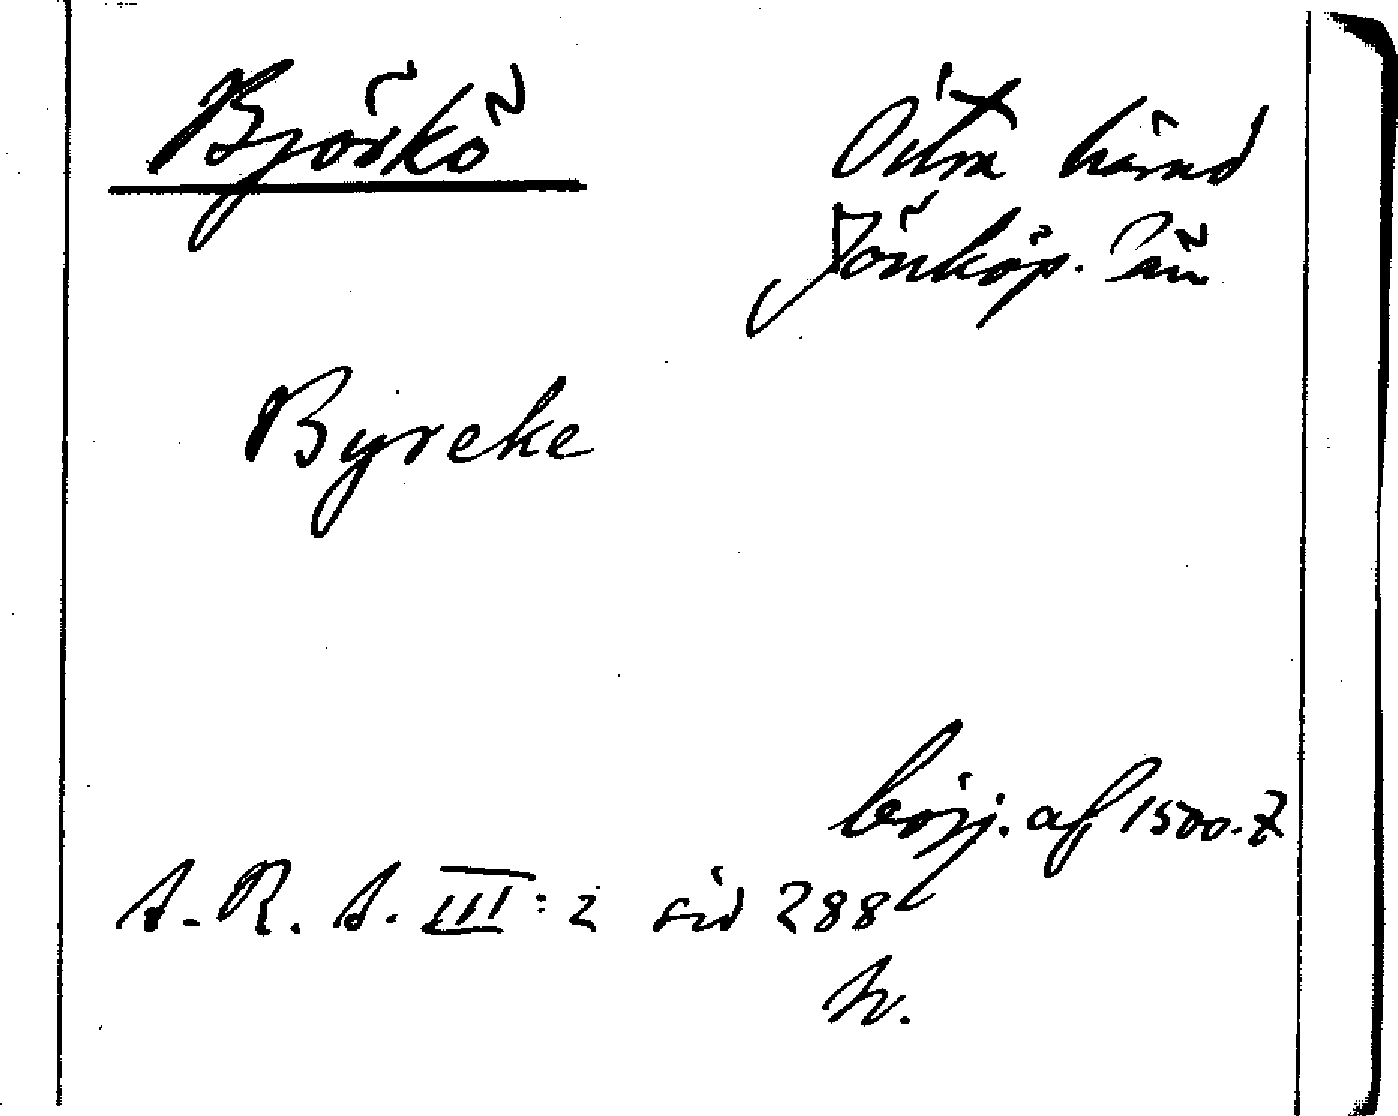 Björkö
Östra härad
Jönköp. län
Byreke
börj. af 1500-t
S. R. S. III: 2 sid 288
h.